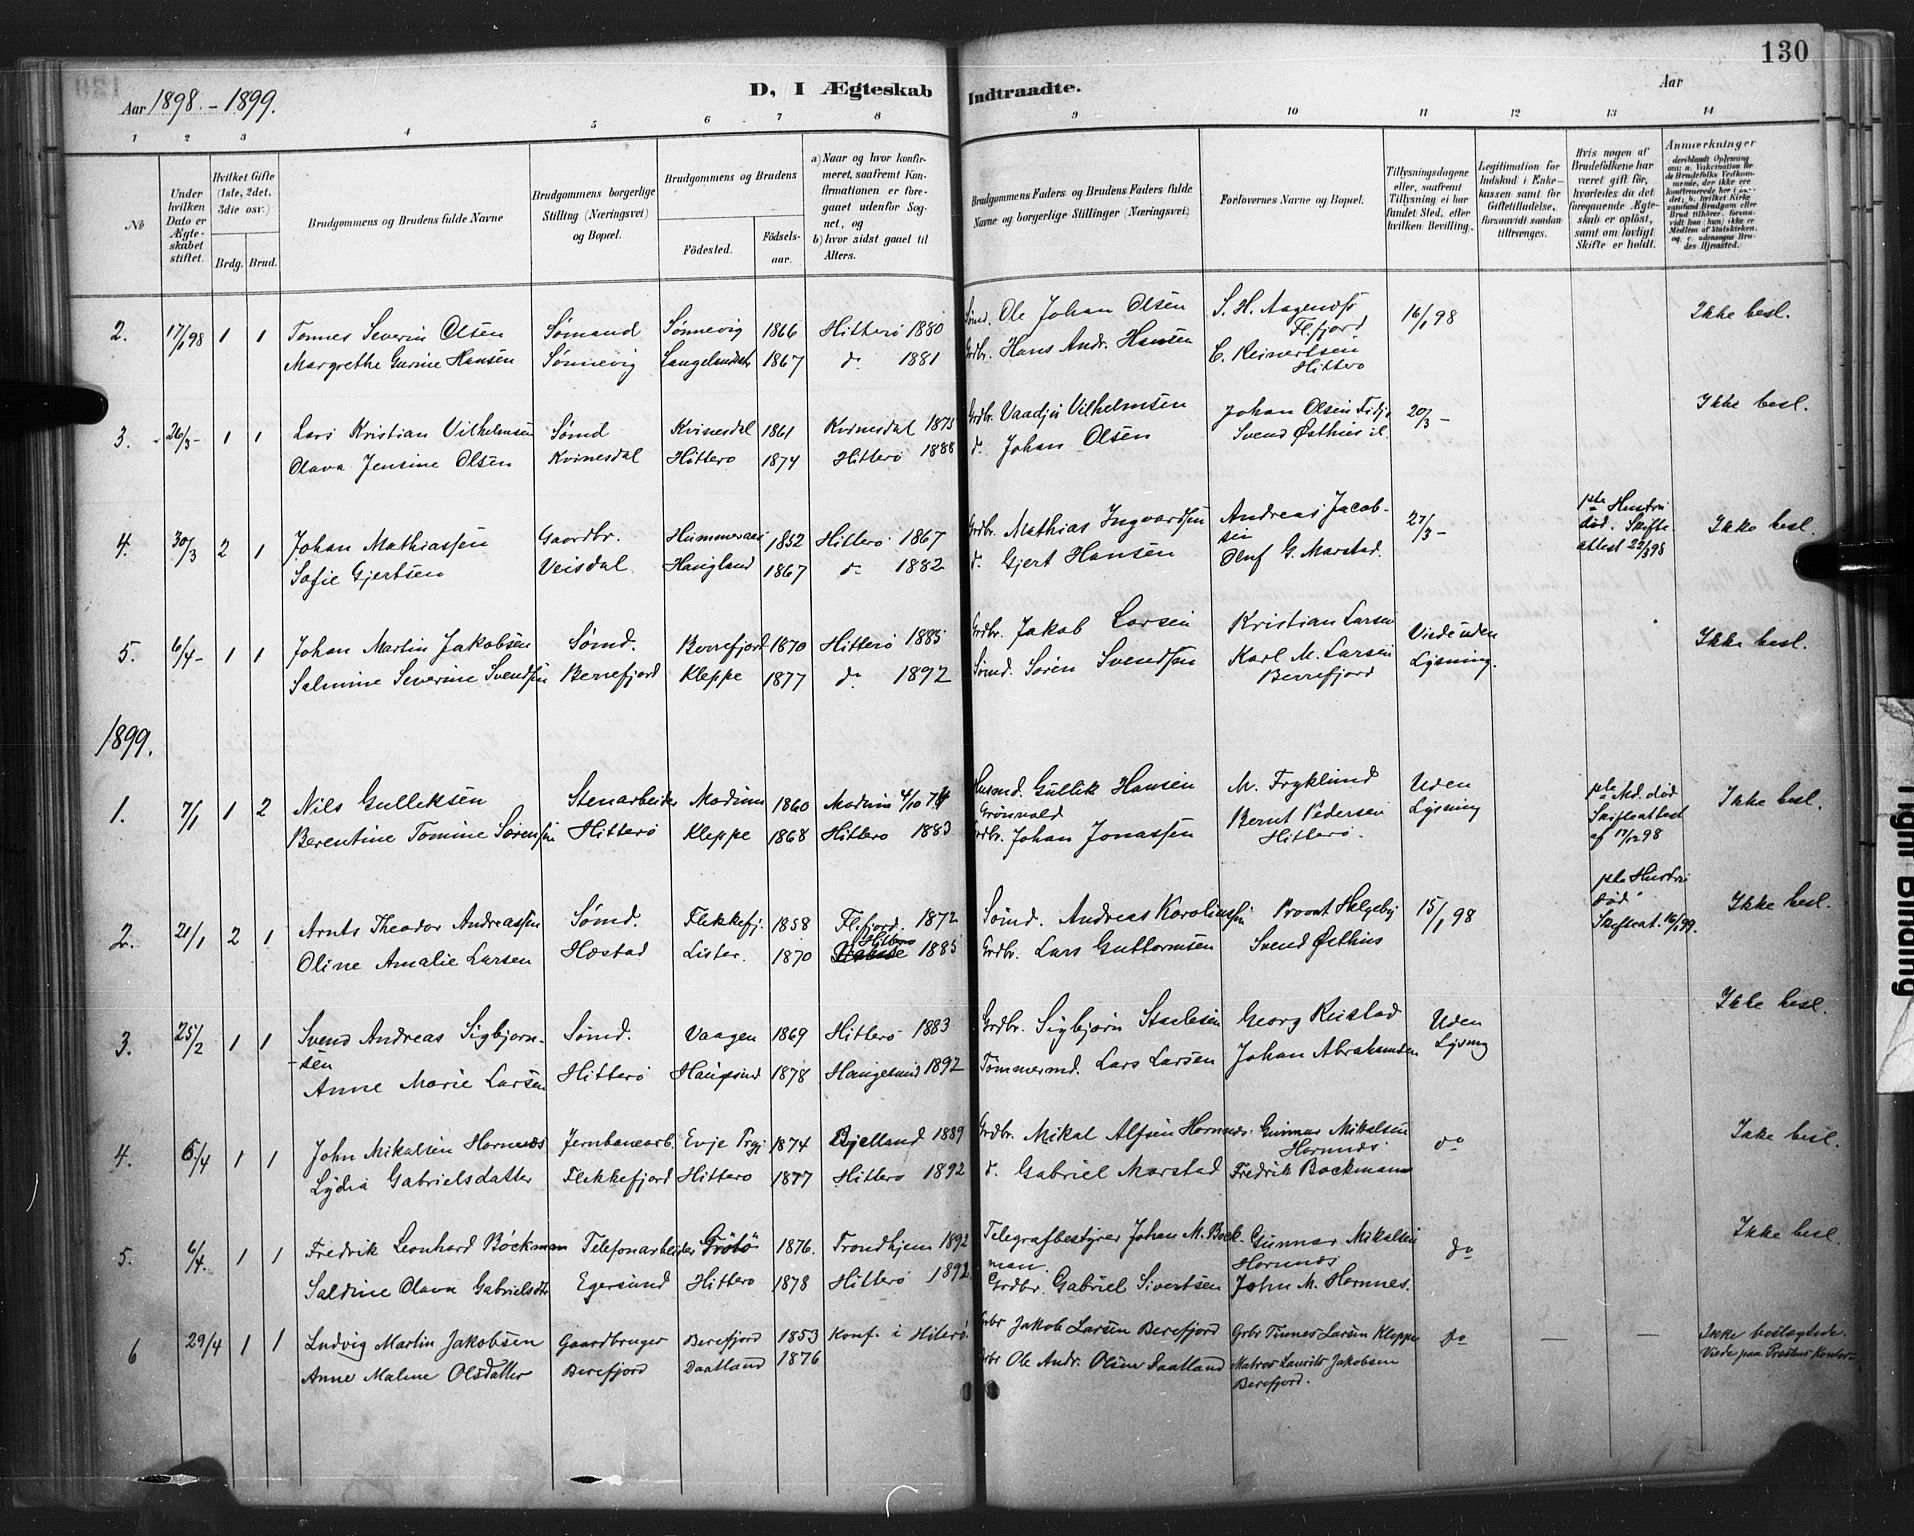 130
Aar 1898 - 1899.
D, I Ægteskab Indtraadte.
Aar
1 2 3 4 5 6 7 8 9 10 11 12 13 14
No
Under hvilken Dato er Ægteskabet stiftet.
Hvilket Gifte (1ste, 2det, 3die osv.)
Brdg. Brud.
Brudgommens og Brudens fulde Navne
Brudgommens borgerlige Stilling (Næringsvei) og Bopæl.
Brudgommens og Brudens
Födested. Födsels-aar.
a) Naar og hvor konfirmeret, saafremt Konfirmationen er foregaaet udenfor Sognet, og
b) hvor sidst gaaet til Alters.
Brudgommens Faders og Brudens Faders fulde Navne og borgerlige Stillinger (Næringsvei)
Forlovernes Navne og Bopæl.
Tillysningsdagene eller, saafremt Tillysning ei har fundet Sted, efter hvilken Bevilling.
Legitimation for Indskud i Enkekassen samt for Giftetilladelse, forsaavidt saadan tiltrænges.
Hvis nogen af Brudefolkene har været gift før, hvorledes da det foregaaende Ægteskab er oplöst, samt om lovligt Skifte er holdt.
Anmærkninger
2. 17/1 98 1 1 Tonnes Severin Olsen Sømand Sønnevig 1866 Hitterö 1880 Sømd. Ole Johan Olsen S. H. Aagendss Flfjord 16/1 98 Ikke besl.
Margrethe Gurine Hansen Sønnevig 1867 do 1881 Grdbr. Hans Andr. Hansen C. Reinertsen Hitterö
3. 26/3 - 1 1 Lars Kristian Vilhelmsen Sømd Kvinesdal 1861 Kvinesdal 1875 Grdbr. Vaadju Vilhelmsen Johan Olsen 20/3 - Ikke besl.
Olava Jensine Olsen Kvinesdal Hitterö 1874 Hitterö 1888 do Johan Olsen Svend Østhus
4. 30/3 2 1 Johan Mathiassen Gaardbr. Hummeraas 1852 Hitterö 1867 Grdbr. Mathias Ingvardsen Andreas Jacobsen 27/3 - 1ste Hustru død. Skifteattest 22/3 98 Ikke besl.
Sofie Gjertsen Veisdal Haugland 1867 do 1882 do Gjert Hansen Oluf G. Marstad.
5. 6/4 - 1 1 Johan Martin Jakobsen Sømd. Berrefjord 1870 Hitterö 1885 Grdbr. Jakob Larsen Kristian Larsen Viede uden Lysning. Ikke besl.
Salmine Severine Svendsen Berrefjord Kleppe 1877 do 1892 Sømd. Søren Svendsen Karl M. Larsen Berrefjord
1899.
1. 7/1 1 2 Nils Gulleksen Stenarbeider Modum 1860 Modum 4/10 74 Husmd. Gullik Hansen Grönvold M. Fryklund Uden Lysning 1ste Md. död Skifteattest af 17/12 98 Ikke besl.
Berentine Tomine Sørensen Hitterö Kleppe 1868 Hitterö 1883 Grdbr. Johan Jonassen Bernt Pedersen Hitterö.
2. 21/1 2 1 Arnts Theodor Andreassen Sømd. Flekkefj. 1858 Flfjord. 1872 Sømd. Andreas Karolinssen Provst Helgeby 15/1 98 1ste Hustru död Skifteat. 16/1 99. Ikke besl.
Oline Amalie Larsen Hostad Lister. 1870 Hitterö 1885 Grdbr. Lars Guttormsen Svend Østhus
3. 25/2 1 1 Svend Andreas Sigbjørnsen Sømd. Vaagen 1869 Hitterö 1883 Grdbr. Sigbjørn Staalesen Georg Reistad Uden Lysning Ikke besl.
Anne Marie Larsen Hitterö Haugsund 1878 Haugesund 1892 Tømmermd. Lars Larsen Johan Abrahamsen
4. 5/4 1 1 John Mikalsen Hornnes Jernbanearb. Evje Prgj 1874 Bjelland 1889 Grdbr. Mikal Alfsen Hornnes. Gunnar Mikalsen Hornnes do Ikke besl.
Lydia Gabrielsdatter Flekkefjord Hitterö 1877 Hitterö 1892 do Gabriel Marstad Fredrik Bockmann
5. 6/4. 1 1 Fredrik Leonhard Böckmann Telefonarbeider Grötö 1876. Trondhjem 1892 Telegrafbestyrer Johan M. Bockman. Gunnar Mikalsen Hornnes do Ikke besl.
Saldine Olava Gabrielsdtr Egersund Hitterö 1878 Hitterö 1892 Grdbr. Gabriel Sivertsen John M. Hornnes.
6 29/4 1 1 Ludvig Martin Jakobsen Gaardbruger Berefjord 1853 Konf. i Hiterö. Grbr Jakob Larsen Berefjord Grbr Tønnes Larsen Kleppe do — — Ikke beslægtede. Viede paa Præstens Kontor.
Anne Malene Olsdatter Berefjord Daatland 1876 Grbr Ole Andr. Olsen Daatland Matros Laurits Jakobsen Berefjord.